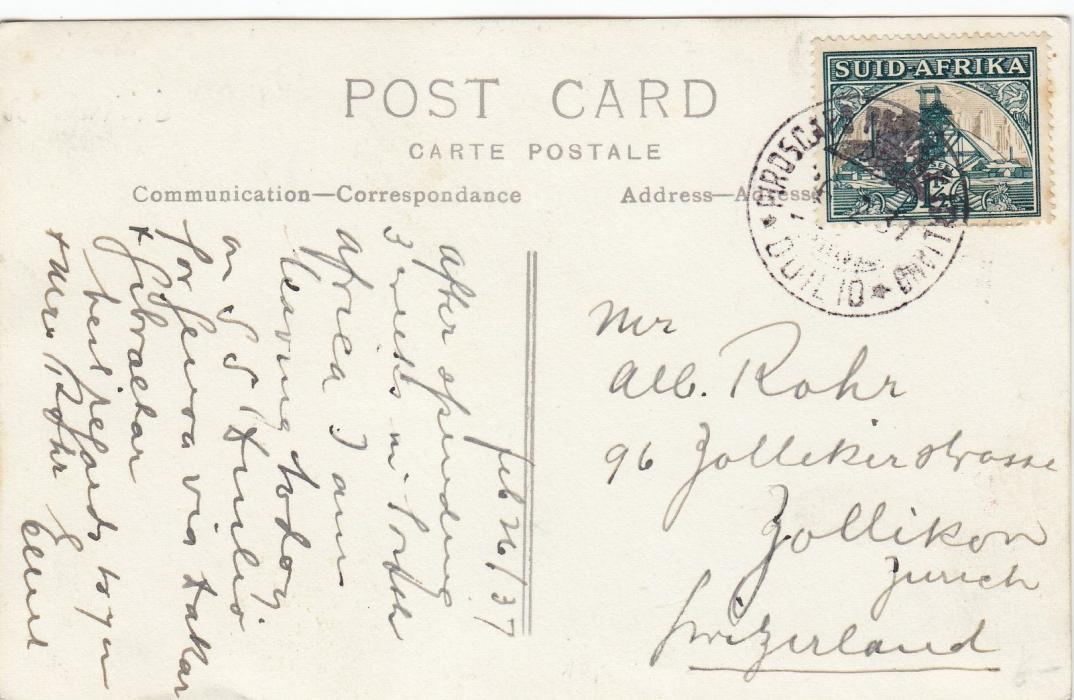 POST CARD
CARTE POSTALE
Communication—Correspondance
Address—Adresse
SUID-AFRIKA
1½
PIROSCAFO
DUILIO
Feb 26/37
after spending
3 weeks in South
Africa I am
leaving today
on S S Duilio
for Genoa via Dakar
+ Gibraltar
best regards to you
+ Mrs Rohr
Mr
Alb. Rohr
96 Zollikerstrasse
Zollikon
Zurich
Switzerland